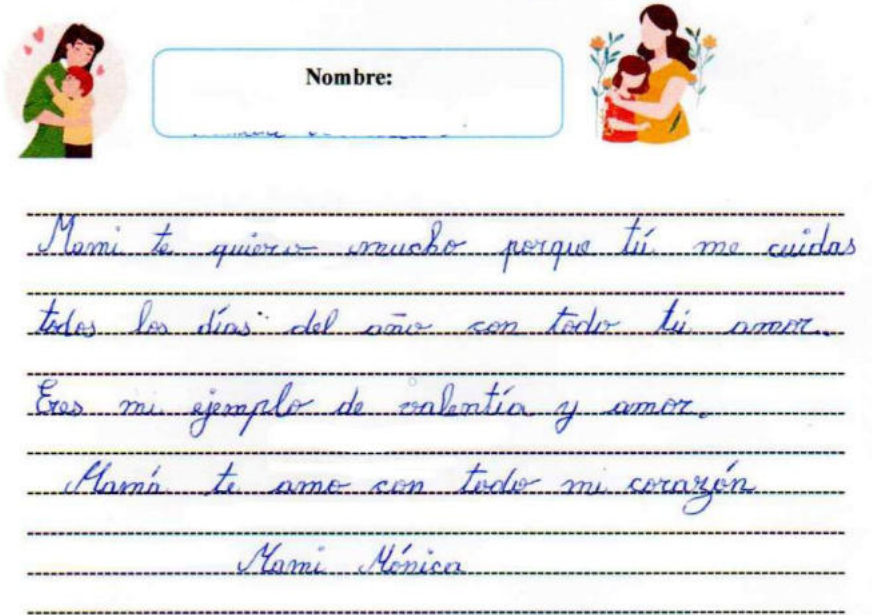 Nombre:
Mami te quiero mucho porque tú me cuidas
todos los días del año con todo tú amor.
Eres mi ejemplo de valentía y amor.
Mamá te amo con todo mi corazón
Mami Mónica